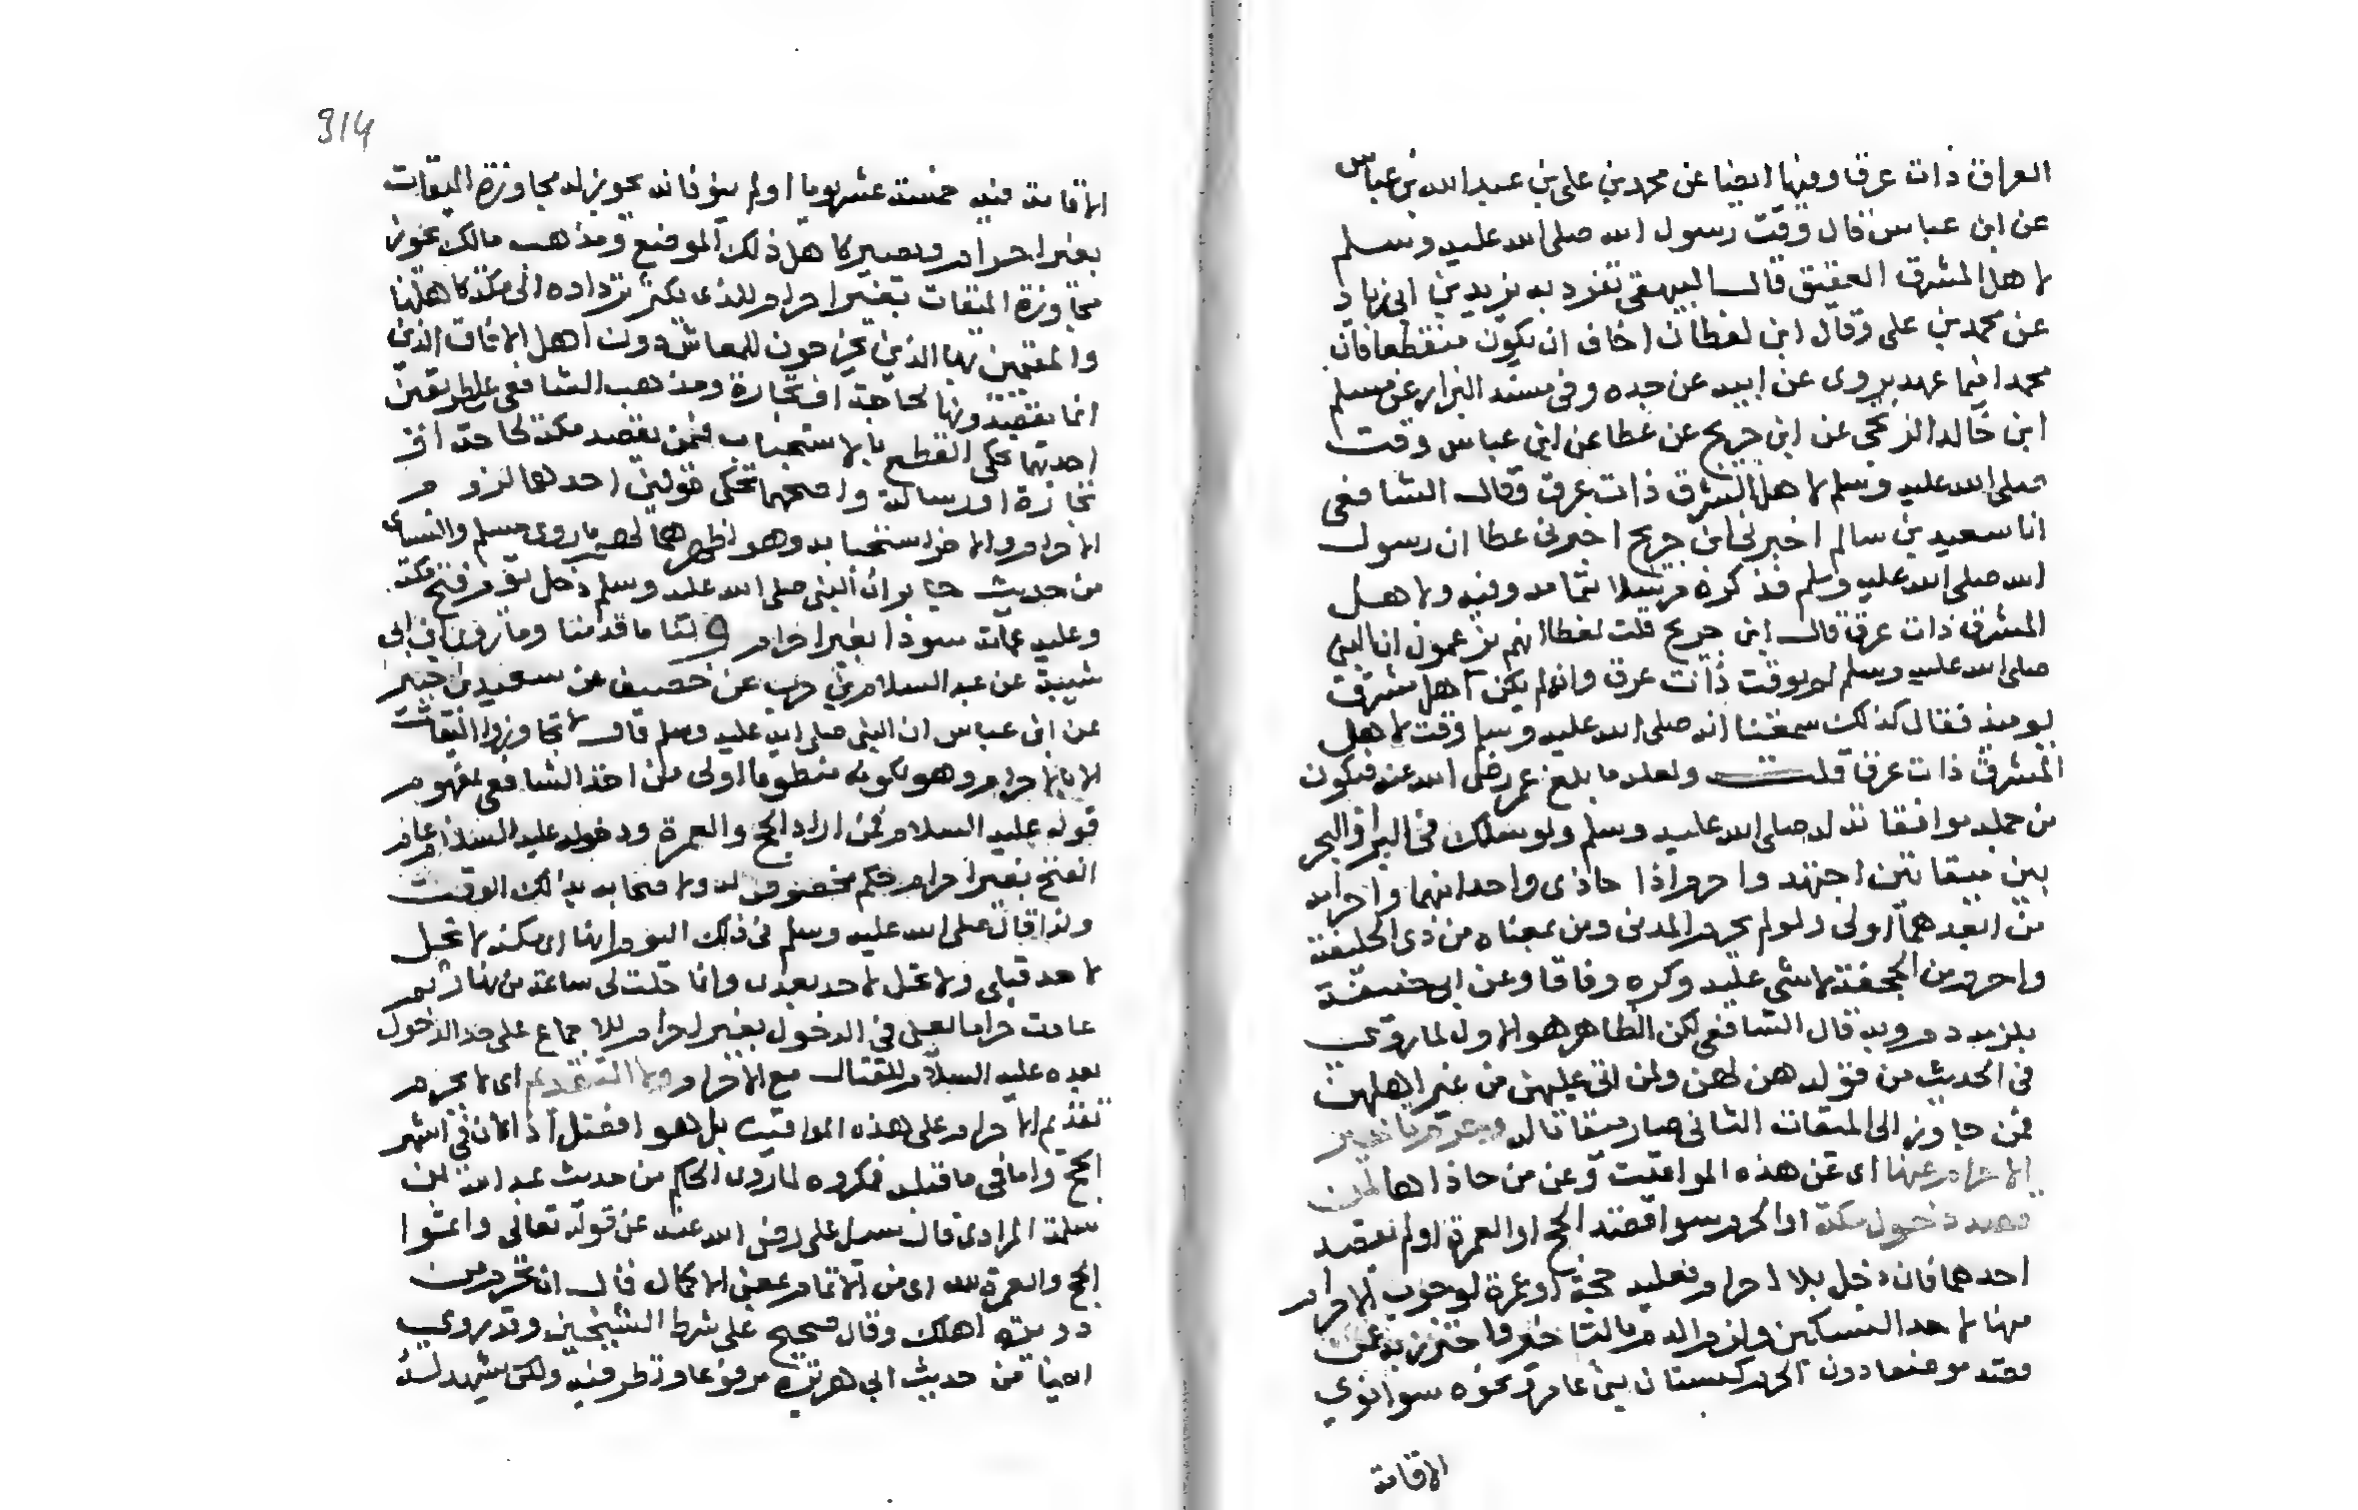 العراق ذات عرق وفيها ايضا عن محمد بن علي بن عبد الله بن عباس
عن ابن عباس قال وقت رسول الله صلى الله عليه وسلم
لاهل المشرق العقيق قال البيهقي تفرد به يزيد بن ابي زياد
عن محمد بن علي وقال ابن لقطان اخاف ان يكون منقطعا فان
محمدا انما عهد يروي عن ابيه عن جده وفي مسند البزار عن مسلم
ابن خالد الزنجي عن ابن جريج عن عطا عن ابن عباس وقت
صلى الله عليه وسلم لاهل المشرق ذات عرق وقال الشافعي
انا سعيد بن سالم اخبرني ابن جريج اخبرني عطا ان رسول
الله صلى الله عليه وسلم فذكره مرسلا بتمامه وفيه ولاهل
المشرق ذات عرق قال ابن جريج قلت لعطا انهم يزعمون ان النبي
صلى الله عليه وسلم لم يوقت ذات عرق وانه لم يكن اهل مشرق
يوميذ فقال كذلك سمعنا انه صلى الله عليه وسلم وقت لاهل
المشرق ذات عرق قلت ولعله ما بلغ عمر رضي الله عنه فيكون
من جملة موافقاته له صلى الله عليه وسلم ولو سلك في البر او البحر
بين ميقاتين اجتهد واحرم اذا حاذى واحدا منهما واحرامه
من ابعدهما اولى ولو لم يحرم المدني ومن بمعناه من ذي الحليفة
واحرم من الجحفة لا شي عليه وكره وفاقا وعن ابي حنيفة
يلزمه دم وبه قال الشافعي لكن الظاهر هو الاول لما روي
في الحديث من قوله هن لهن ولمن اتى عليهن من غير اهلهن
فمن جاوز الى الميقات الثاني صار ميقاتا له
الاحرام عنها اى عن هذه المواقيت وعن من حاذاها لمن
قصد دخول مكة او الحرم سوا قصد الحج او العمرة او لم يقصد
احدهما فان دخل بلا احرام فعليه حجة او عمرة لوجوب الاحرام
منها لاحد النسكين ولزم الدم بالتاخير واحترز به عن
قصد موضعا دون الحرم كبستان بني عامر ونحوه سوا نوي
الاقامة
314
الاقامة فيه خمسة عشر يوما او لم ينو فانه يجوز له مجاوزة الميقات
بغير احرام ويصير كاهل ذلك الموضع ومذهب مالك يجوز
مجاوزة الميقات بغير احرام للذي يكثر ترداده الى مكة كاهلها
والمقيمين بها الذين يخرجون للمعاش دون اهل الافاق الذين
انما يقصدونها لحاجة او تجارة ومذهب الشافعي على طريقين
احدهما يحكي القطع بالاستحباب فيمن يقصد مكة لحاجة او
تجارة او رسالة واصحهما تحكي قولين احدهما لزوم
الاحرام والاخر استحبابه وهو اظهرهما لهم ما روى مسلم والنساي
من حديث جابر ان النبي صلى الله عليه وسلم دخل يوم فتح مكة
وعليه عمامة سودا بغير احرام ولنا ما قدمنا وما روى ابن ابي
شيبة عن عبد السلام بن حرب عن خصيف عن سعيد بن جبير
عن ابن عباس ان النبي صلى الله عليه وسلم قال لا تجاوزوا الميقات
الا بالاحرام وهو لكونه منطوقا اولى من اخذ الشافعي بمفهوم
قوله عليه السلام فمن اراد الحج والعمرة ودخوله عليه السلام عام
الفتح بغير احرام حكم مخصوص له ولاصحابه بذلك الوقت
ولذا قال صلى الله عليه وسلم في ذلك اليوم انها اى مكة لا تحل
لاحد قبلي ولا تحل لاحد بعدي وانما حلت لي ساعة من نهار ثم
عادت حراما يعني في الدخول بغير احرام للاجماع على حل الدخول
بعده عليه السلام للقتال مع الاحرام ولا التقديم اى لا يحرم
تقديم الاحرام على هذه المواقيت بل هو افضل اذا كان في اشهر
الحج واما في ما قبلها فمكروه لما روى الحاكم من حديث عبد الله بن
سلمة المرادي قال سيل علي رضي الله عنه عن قوله تعالى واتموا
الحج والعمرة لله اى من الاتمام بمعنى الاكمال فقال ان تحرم من
دويرة اهلك وقال صحيح على شرط الشيخين وقد روي
ايضا من حديث ابي هريرة مرفوعا ونظر فيه ولكن يشهد له